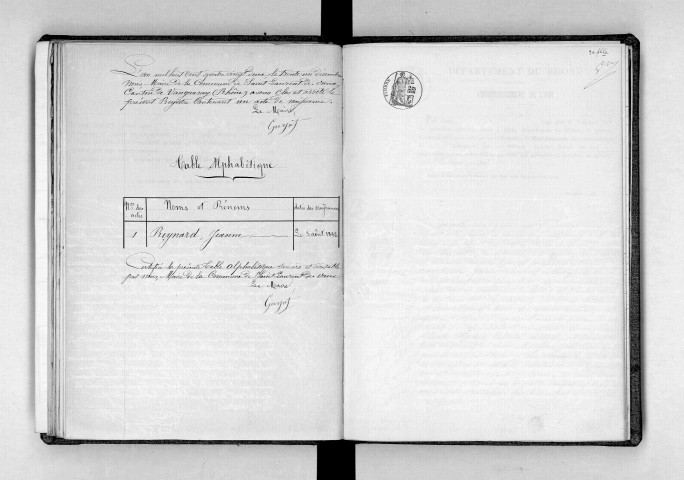 L'an mil huit cent quatre vingt deux le trente un décembre
nous Maire de la Commune de Saint Laurent de Vaux
Canton de Vaugneray (Rhône) avons clos et arrêté le
présent Registre Contenant un acte de naissance.
Le Maire
Guyot
Table Alphabétique
Nos des actes Noms et Prénoms dates des naissances
1 Reynard, Jeanne Le 5 août 1882
Certifié la présente table alphabétique
par nous Maire de la Commune de Saint Laurent de Vaux
Le Maire
Guyot